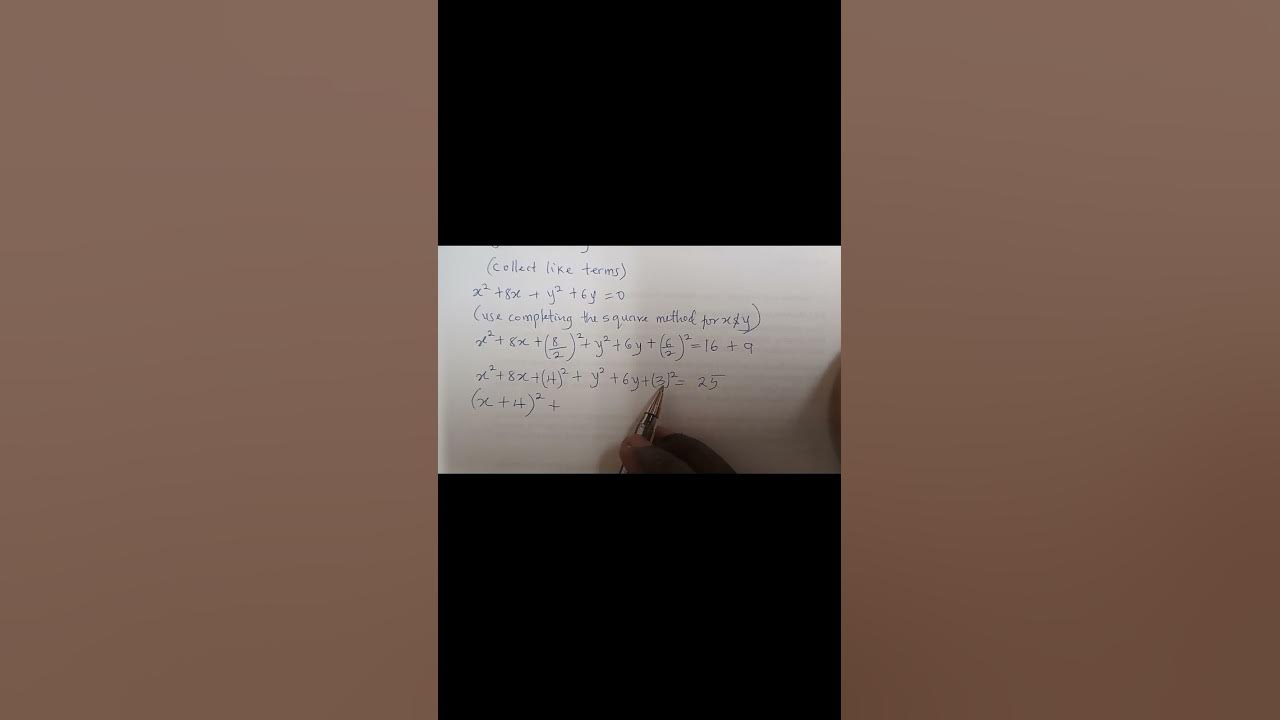 (collect like terms)
x² + 8x + y² + 6y = 0
(use completing the square method for x & y)
x² + 8x + (8/2)² + y² + 6y + (6/2)² = 16 + 9
x² + 8x + (4)² + y² + 6y + (3)² = 25
(x + 4)² +